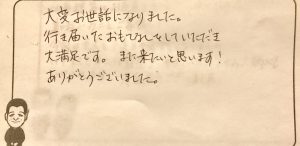 大変お世話になりました。
行き届いたおもてなしをしていただき
大満足です。また来たいと思います！
ありがとうございました。